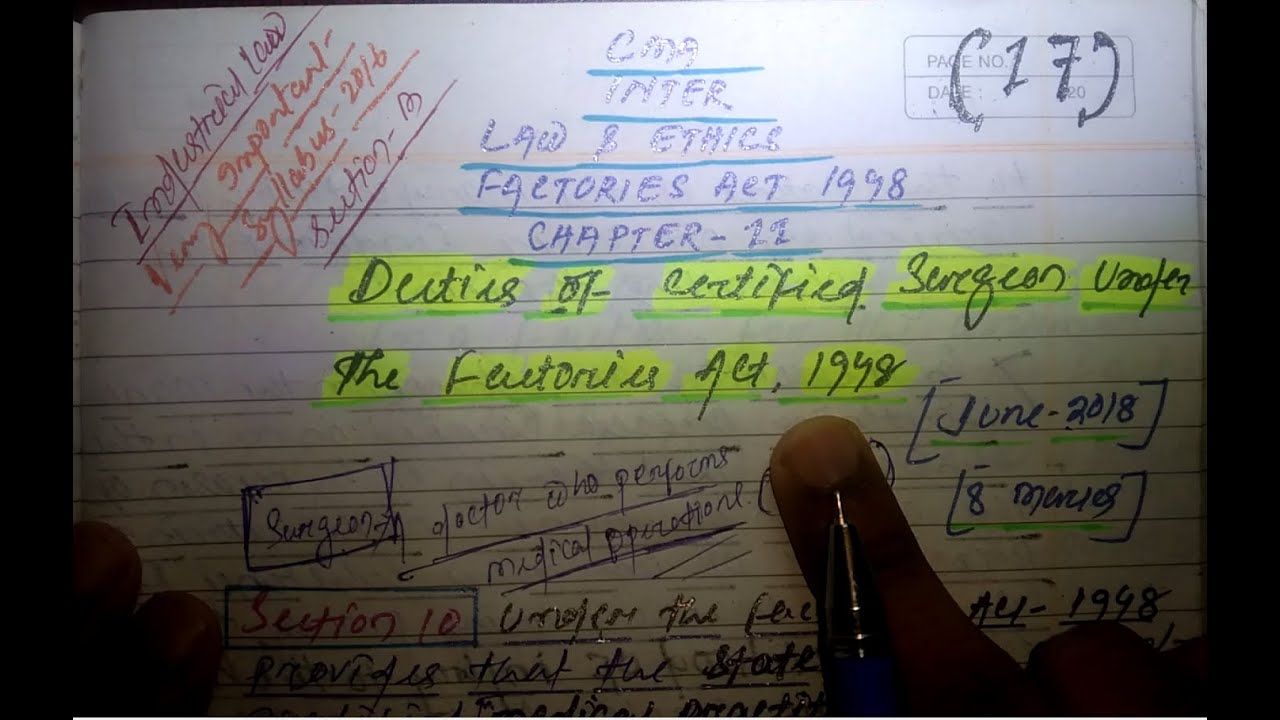 Industrial Law
Very Important-
Syllabus-2016
Section-B
(17)
PAGE NO.
DATE :
20
CMA
INTER
LAW & ETHICS
FACTORIES ACT 1948
CHAPTER-11
Duties of Certified Surgeon Under
The Factories Act, 1948
[June-2018]
[8 Marks]
Surgeon
doctor who performs
medical operations.
Section 10 Under the Fac Act-1948
provides that the State
medical